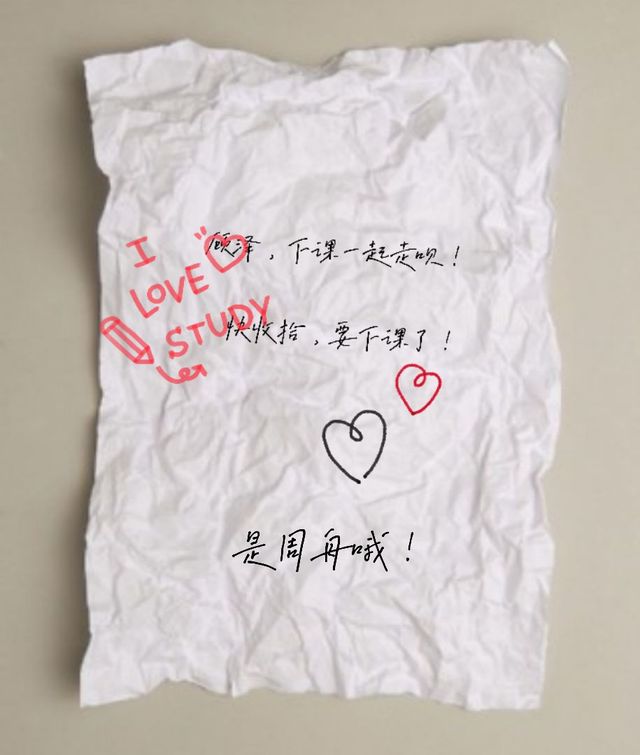 I
LOVE
STUDY
顾泽，下课一起走呗！
快收拾，要下课了！
是周舟哦！